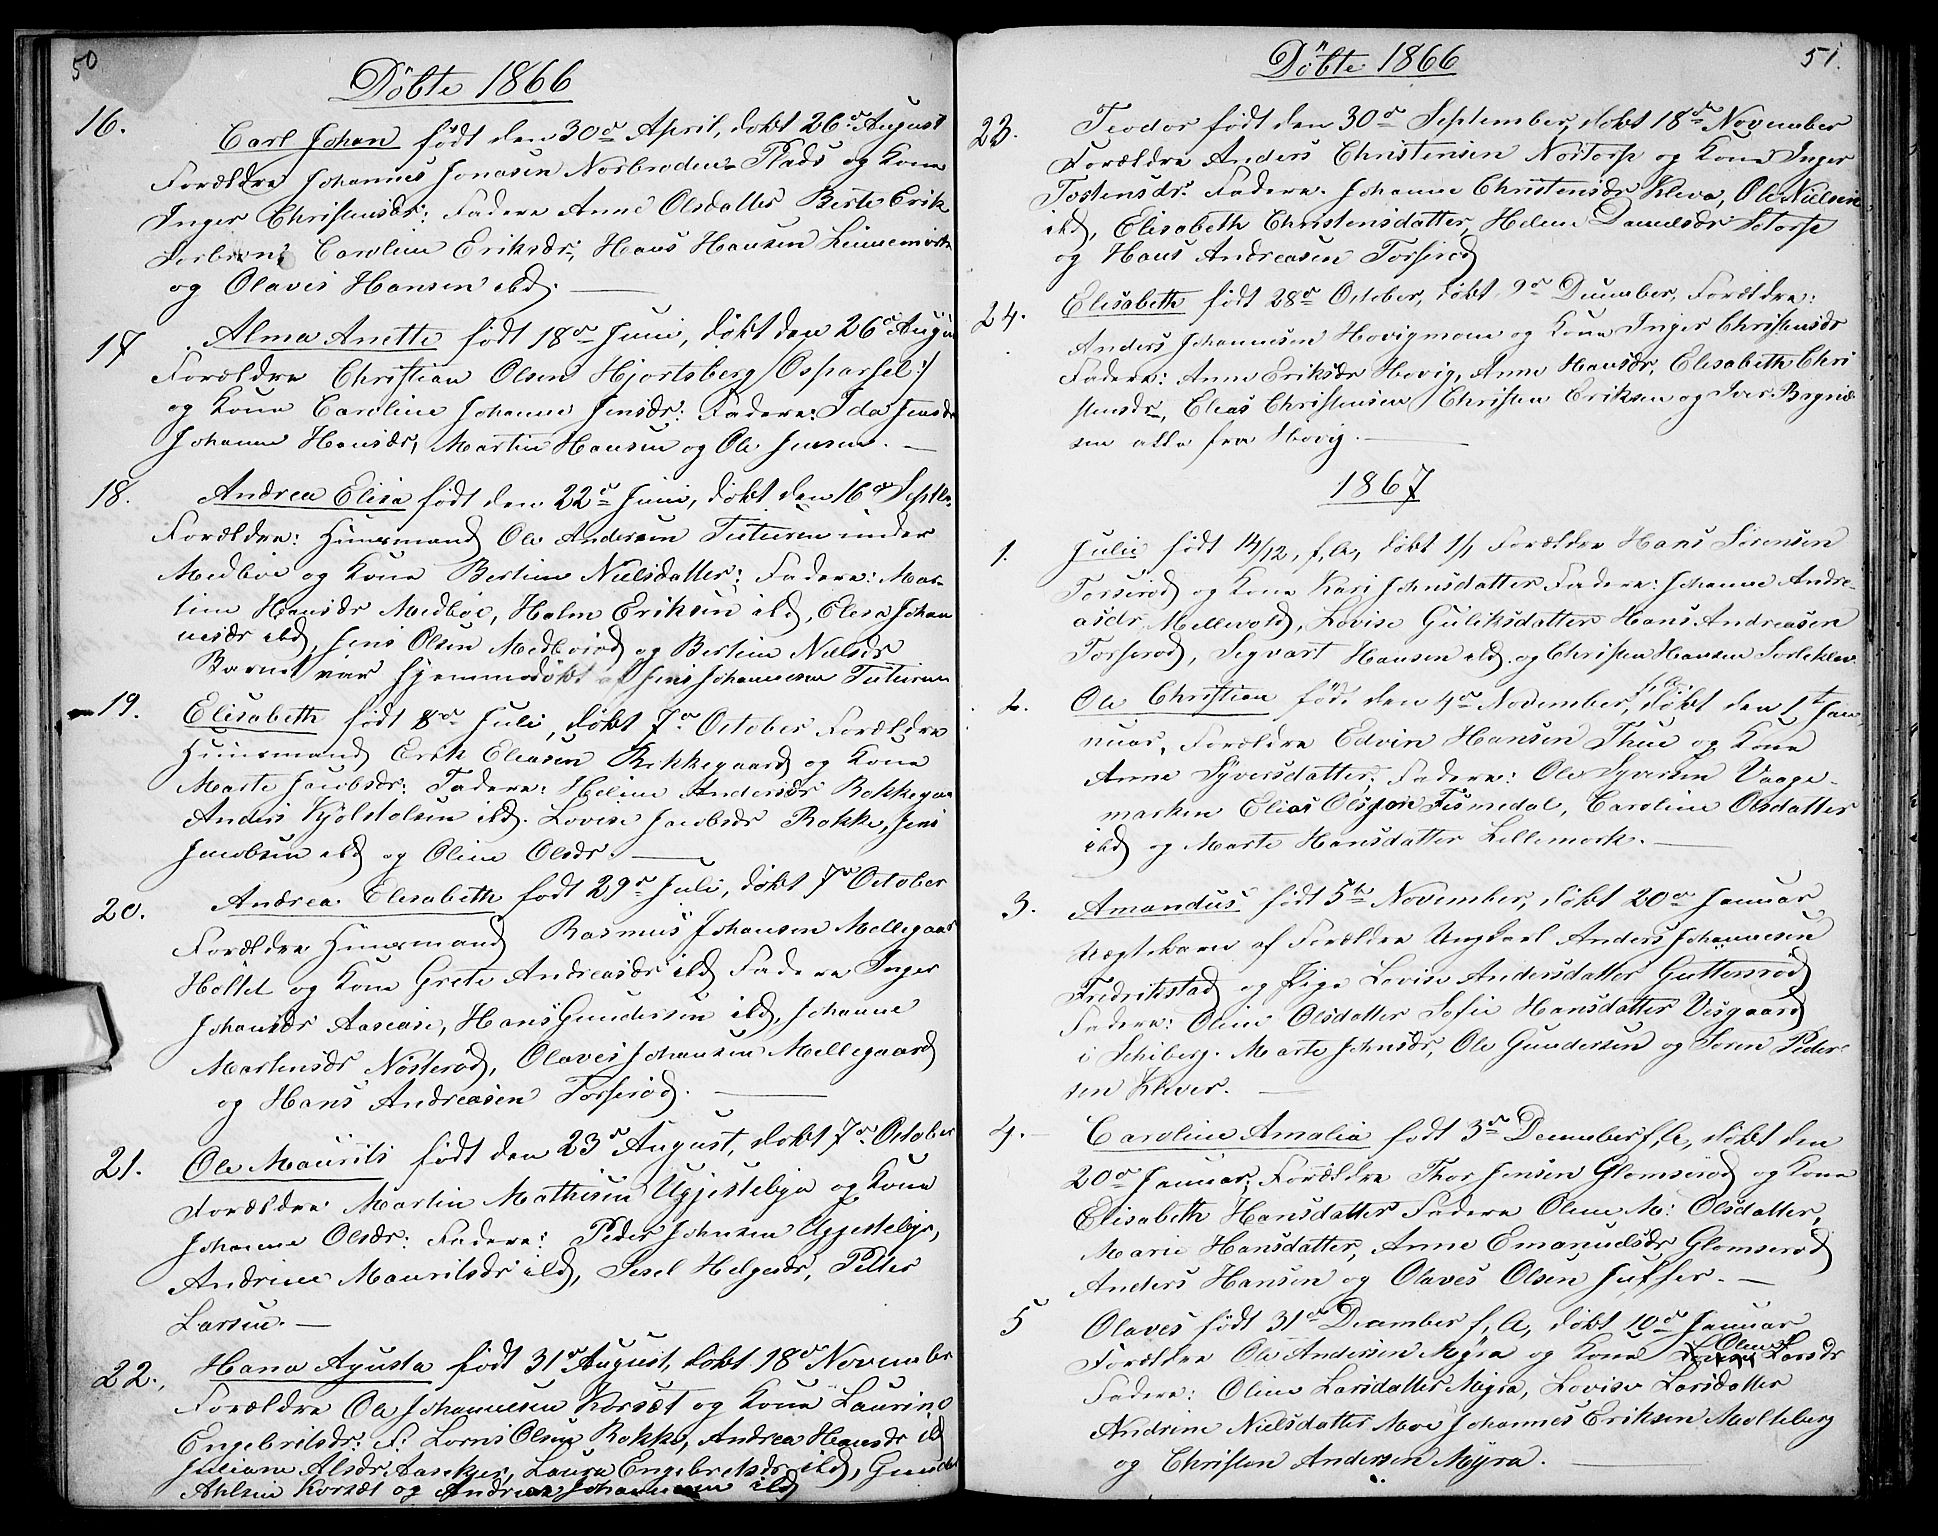 50
Döbte 1866
16.
Carl Johan født den 30te April, døbt 26de August
Forældre Johannes Jonasen Norbroden Plads og Kone
Inger Christensdr: Faddere Anne Olsdatter Berte Erik
Caroline Eriksdr, Hans Hansen
og Olavis Hansen ibd.
17
Alma Anette født 18de Juni, døbt den 26de Augu
Forældre Christian Olsen Hjortsberg /:Osparsel:/
og Kone Caroline Johanne Jensdr: Faddere: Ida Jensdr
Johanne Hansdr, Martin Hansen og Ole Jensen. —
18.
Andrea Elisa født den 22de Juni, døbt den 16de Septbr.
Forældre: Huusmand Ole Andersen Tuturen under
Medböe og Kone Bertine Nielsdatter: Faddere: Mar-
tine Hansdr Medböe, Holm Eriksen ibd, Elesa Johan
nesdr ibd, Jens Olsen og Bertine Nielsdr
Barnet var hjemmedøbt af Jens Johannesen Tuturen
19.
Elisabeth født 8de Juli, døbt 7de October Forældre
Huusmand Erik Eleasen Rokkegaard og Kone
Marte Jacobsdr: Faddere: Heline Andersdr Rokkegaa
Anders Kjölstolsen ibd. Lovise Jacobsdr Rokke, Jens
Jacobsen ibd og Oline Olsdr. —
20.
Andrea Elesabeth født 29de Juli, døbt 7de October
Forældre Huusmand Rasmus Johansen Mellegaar
Holtet og Kone Grete Andreasdr ibd Faddere Inger
Johansdr Aaseaie, Hans Gundersen ibd, Johanne
Martensdr Nösteröd, Olaves Johansen Mellegaard
og Hans Andreasen Torseröd. —
21.
Ole Maurits født den 23de August, døbt 7de October
Forældre Martin Mathisen Ugjestebye og Kone
Johanne Olsdr: Faddere: Peder Johnsen Ugjestebye,
Andrine Mauritsdr ibd, Sesel Helgesdr, Petter
Larsen. —
22.
Hana Agusta født 31te August, døbt 18de November
Forældre Ole Johannesen Korsæt og Kone Laurine
Engebritsdr: F: Olsen Rokke, Andrea Hansdr ibd
Juliane Alsdr Aaseker, Laura Engebretsdr ibd,
Ahlsen Korsæt og Andreas Johannesen ibd
51.
Döbte 1866
23.
Teodor født den 30te September, døbt 18de November
Forældre Anders Christensen Nortorp og Kone Inger
Tostensdr. Faddere. Johanne Christensdr Kleva, Ole Nielsen
ibd, Elisabeth Christensdatter, Helene Danielsdr Storp
og Hans Andreasen Torseröd
24.
Elisabeth født 28de October, døbt 9de December, Forældre:
Anders Johannesen Hovigmoen og Kone Inger Christensdr
Faddere: Anne Eriksdr Hovig, Anne Hansdr, Elisabeth Chri
stensdr, Elias Christensen Christen Eriksen og Iver
sen alle fra Hovig. —
1867
1.
Julie født 14/12, f. A, døbt 1/1 Forældre Hans Sörensen
Torseröd og Kone Kari Johnsdatter Faddere: Johanne Andre-
asdr Mellevold, Lovise Guliksdatter Hans Andreasen
Torseröd, Segvart Hansen ibd. og Christen Hansen
2.
Ole Christian født den 4de November, f. A. døbt den 1te Jan-
nuar, Forældre Edvin Hansen Thue og Kone
Anne Syversdatter, Faddere: Ole Syversen Vaage-
marken Elias Olsen Tismedal, Caroline Olsdatter
ibd og Marte Hansdatter Lillemork. —
3.
Amandus født 5te November, døbt 20de Januar
Uægtebarn af Forældre Ungkarl Anders Johannesen
Fredrikstad og Pige Lovise Andersdatter Guttersröd
Faddere: Oline Olsdatter Sofie Hansdatter Visgaard
i Schiberg. Marte Johnsdr, Ole Gundersen og Soren Peder-
sen Klever. —
4.
Caroline Amalia født 3de December f. A, døbt den
20de Januar, Forældre Thor Jensen Glomseröd og Kone
Elisabeth Hansdatter Faddere Oline M: Olsdatter,
Marie Hansdatter, Anne Emanuelsdr Glomseröd
Anders Hansen og Olaves Olsen Juffer. —
5
Olaves født 31te December f. A, døbt 10de Januar
Forældre Ole Andersen Myra og Kone Oline Larsdr
Faddere: Oline Larsdatter Myra, Lovise Larsdatter
Andrine Nielsdatter Moe Johannes Eriksen Molteberg
og Christen Andersen Myra. —